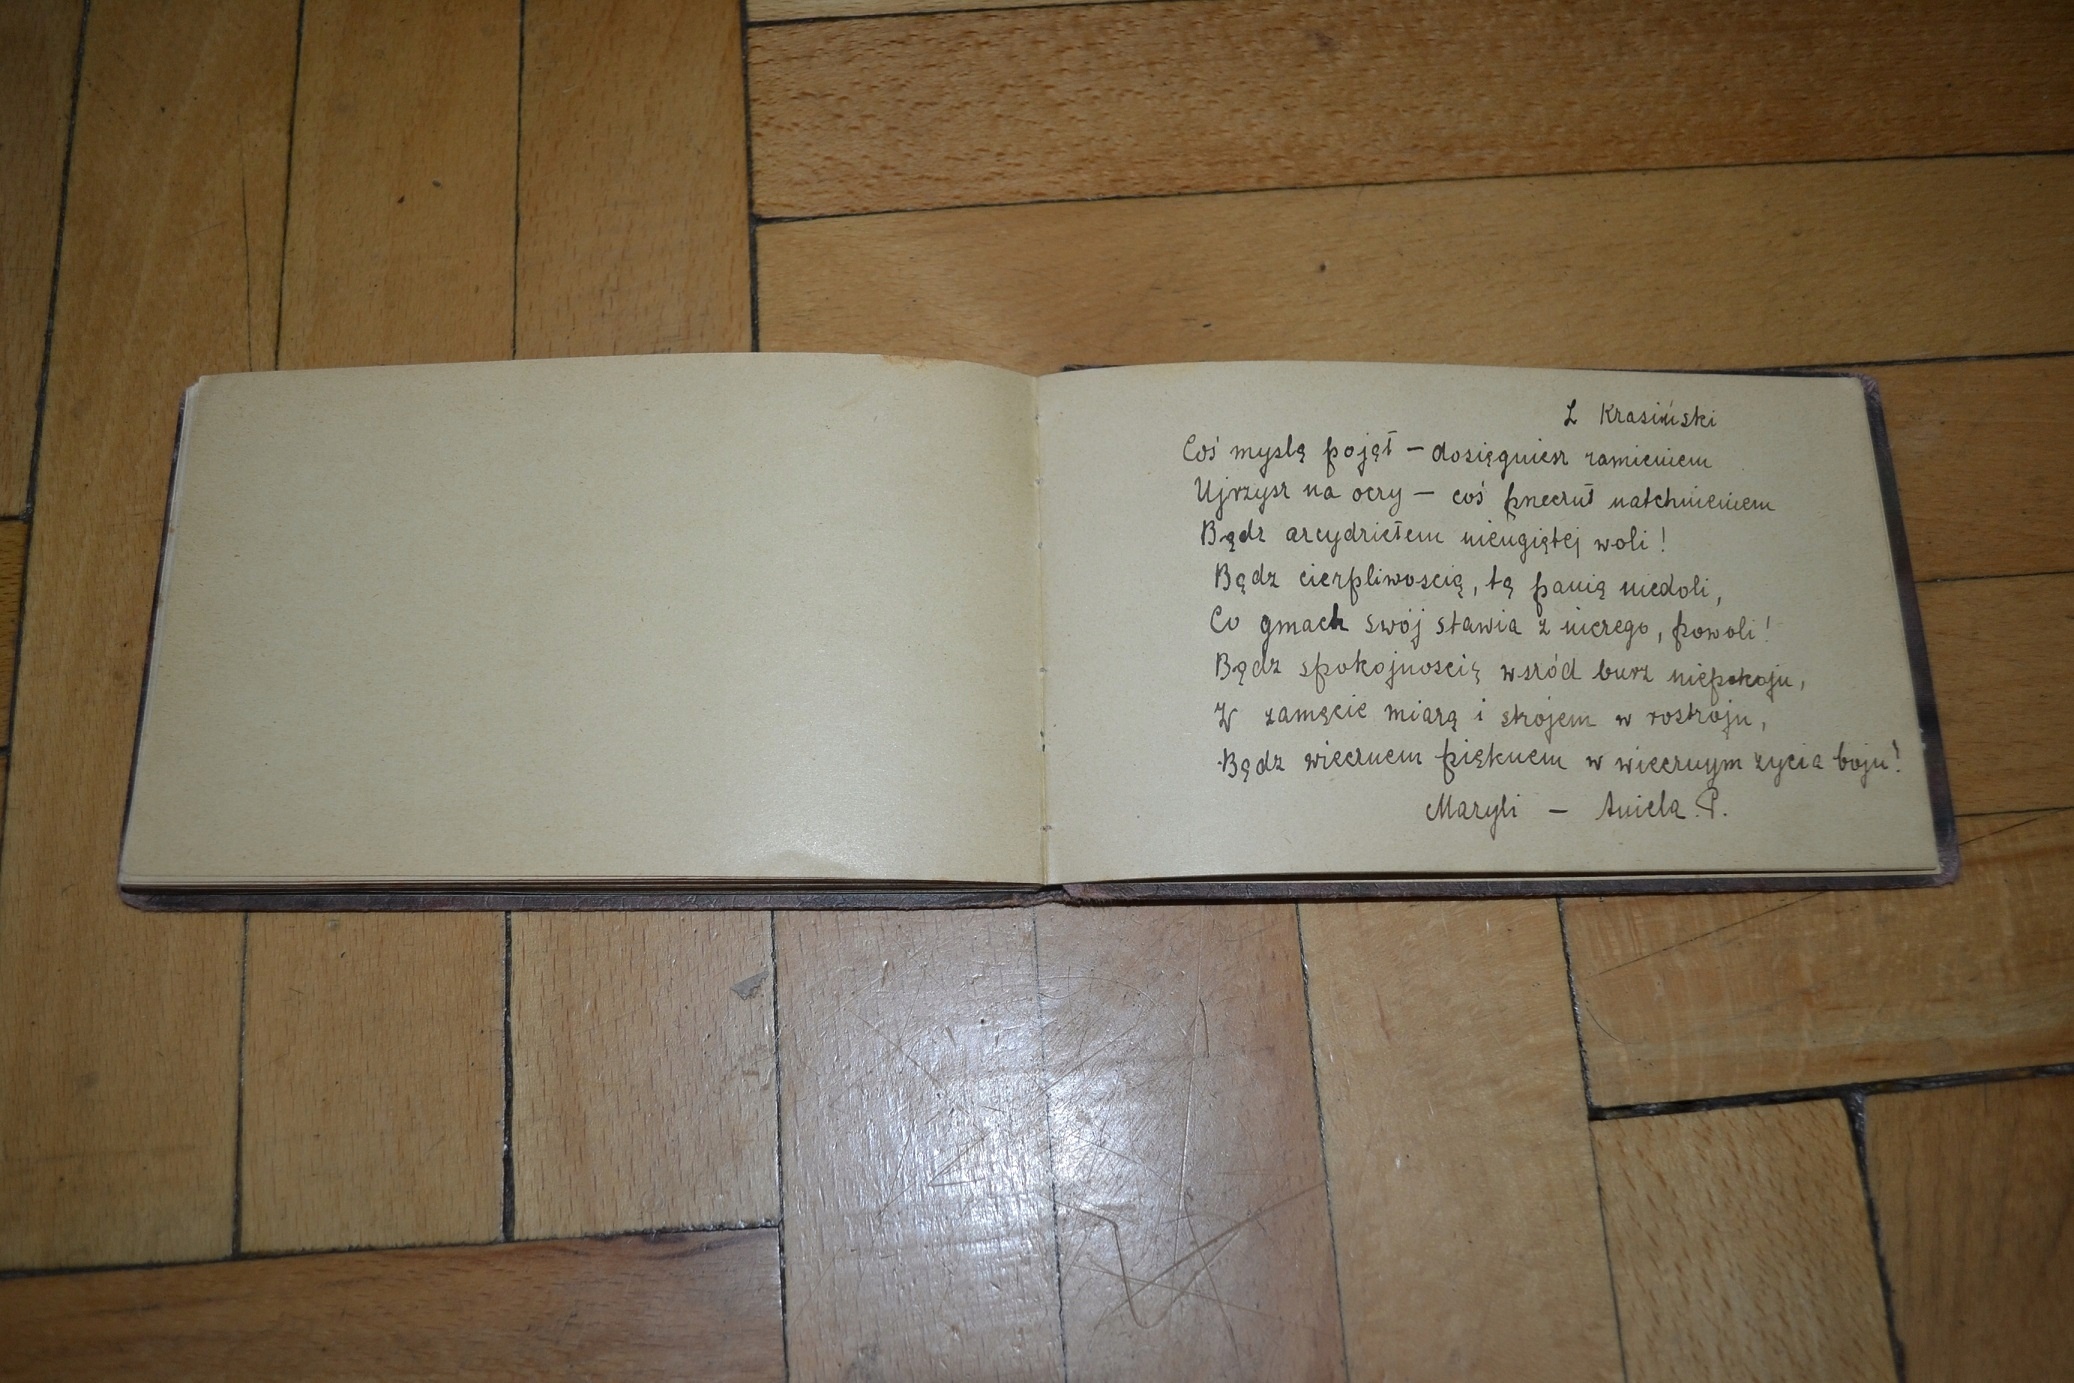 Z Krasiński
Coś myslą pojął – dosięgniesz ramieniem
Ujrzysz na oczy – coś przeczuł natchnieniem
Bądz arcydziełem nieugiętej woli!
Bądz cierpliwoscią, tą panią niedoli,
Co gmach swój stawia z niczego, powoli!
Bądz spokojnoscią wsród burz niepokoju,
W zamęcie miarą i strojem w rostroju,
Bądz wiecznem pięknem w wiecznym zycia boju!
Maryli – Aniela. P.